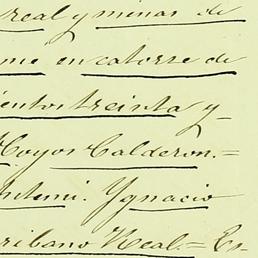 real y minas de
me en catorse de
ientos treinta y
Hoyos Calderon.=
Antemi. Ygnacio
cribano Real.= Es-